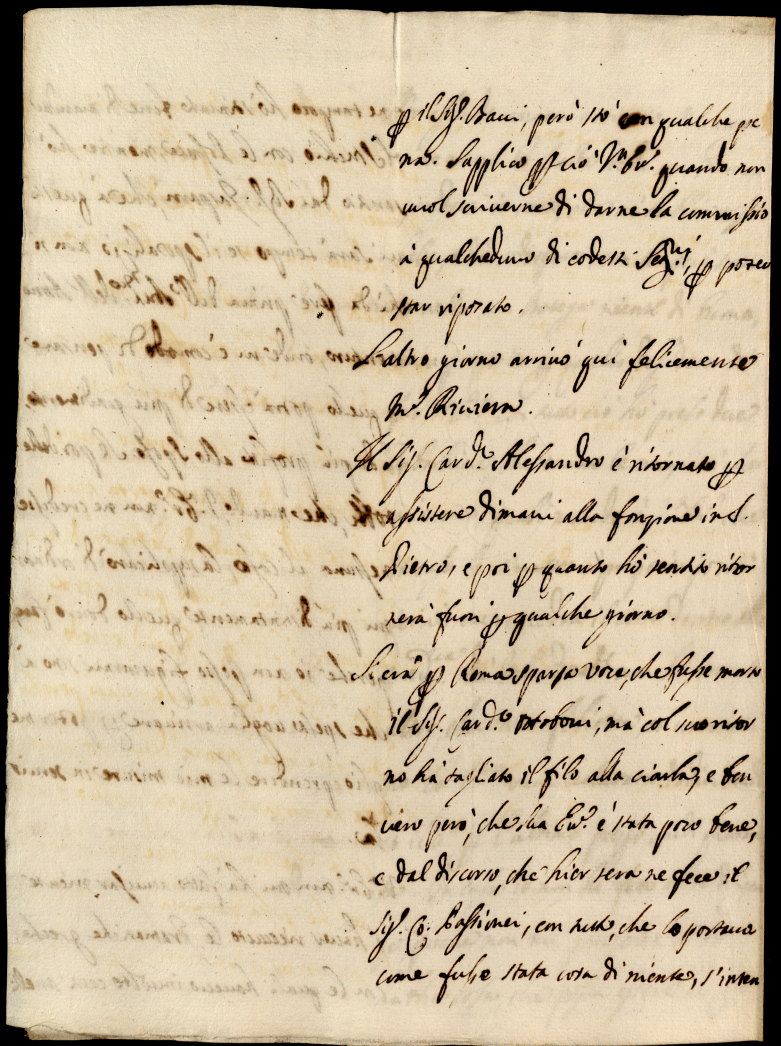 ꝑ il Sig.r Bacci, però stò con qualche pe
na. Supplico ꝑ ciò V.ra Em.a quando non
vuol scriverne di darne la commissio
à qualcheduno di codesti Sig.ri, ꝑ poter
star riposato.
L'altro giorno arrivò quì felicemente
M.r Riviera.
Il Sig.r Card.le Alessandro è ritornato ꝑ
assistere dimani alla fonzione in S.
Pietro, e poi ꝑ quanto hò sentito ritor
nerà fuori ꝑ qualche giorno.
Si era ꝑ Roma sparsa voce, che fusse morto
il Sig.r Card.le Ottoboni, mà col suo ritor
no hà tagliato il filo alla ciarla, e ben
vero però, che Sua Em.a è stata poco bene,
e dal discorso, che hier sera ne fece il
Sig.r Co: Passionei, con tutto, che lo portava
come fusse stata cosa di niente, s'inten